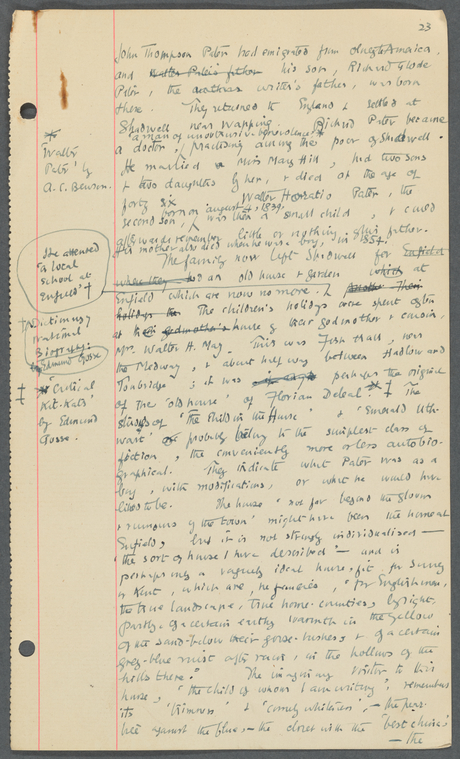 23
John Thompson Pater had emigrated from Olney to America,
and Walter Pater's father his son, Richard Glode
Pater, the writer's father, was born
there. They returned to England & settled at
Shadwell near Wapping. Richard Pater became
"a man of unobtrusive benevolence,"*
a doctor, practising among the poor of Shadwell.
He married Miss Mary Hill, had two sons
& two daughters by her, & died at the age of
forty six. Walter Horatio Pater, the
born on august 4, 1839,
second son, was then a small child, & could
afterwards remember little or nothing of his father.
His mother also died when he was a boy, in 1854.
The family now left Shadwell for Enfield
where they had an old house & garden which at
Enfield which are now no more. Their
holidays The children's holidays were spent often
at his godmother's house of their godmother & cousin,
Mr. Walter H. May. This was Fish Hall, near
the Medway, & about half way between Hadlow and
Tonbridge; it was perhaps the original
of the 'old house' of Florian Deleal.* ‡ The
studies of 'The Child in the House' & 'Emerald Uth-
wart' probably belong to the simplest class of
fiction, the conveniently more or less autobio-
graphical. They indicate what Pater was as a
boy, with modifications, or what he would have
liked to be. The house 'not far beyond the gloom
& rumours of the town' might have been the home at
Enfield, but it is not strongly individualised —
'the sort of house I have described' — and is
perhaps only a vaguely ideal house, fit for Surrey
or Kent, which are, he fancies, "for Englishmen,
the true landscape, true home-counties, by right,
partly, of a certain earthy warmth in the yellow
of the sand below their gorse-bushes, & of a certain
grey-blue mist after rain, in the hollows of the
hills there." The imaginary visitor to this
house, "the child of whom I am writing", remembers
its 'trimness' & 'comely whiteness', — the pear
tree against the blue, — the closet with the 'best china'
— the
*
'Walter
Pater' by
A. C. Benson.
He attended
a local
school at
Enfield †
† Dictionary
National
Biography:
by Edmund Gosse
‡ 'Critical
Kit-Kats'
by Edmund
Gosse.